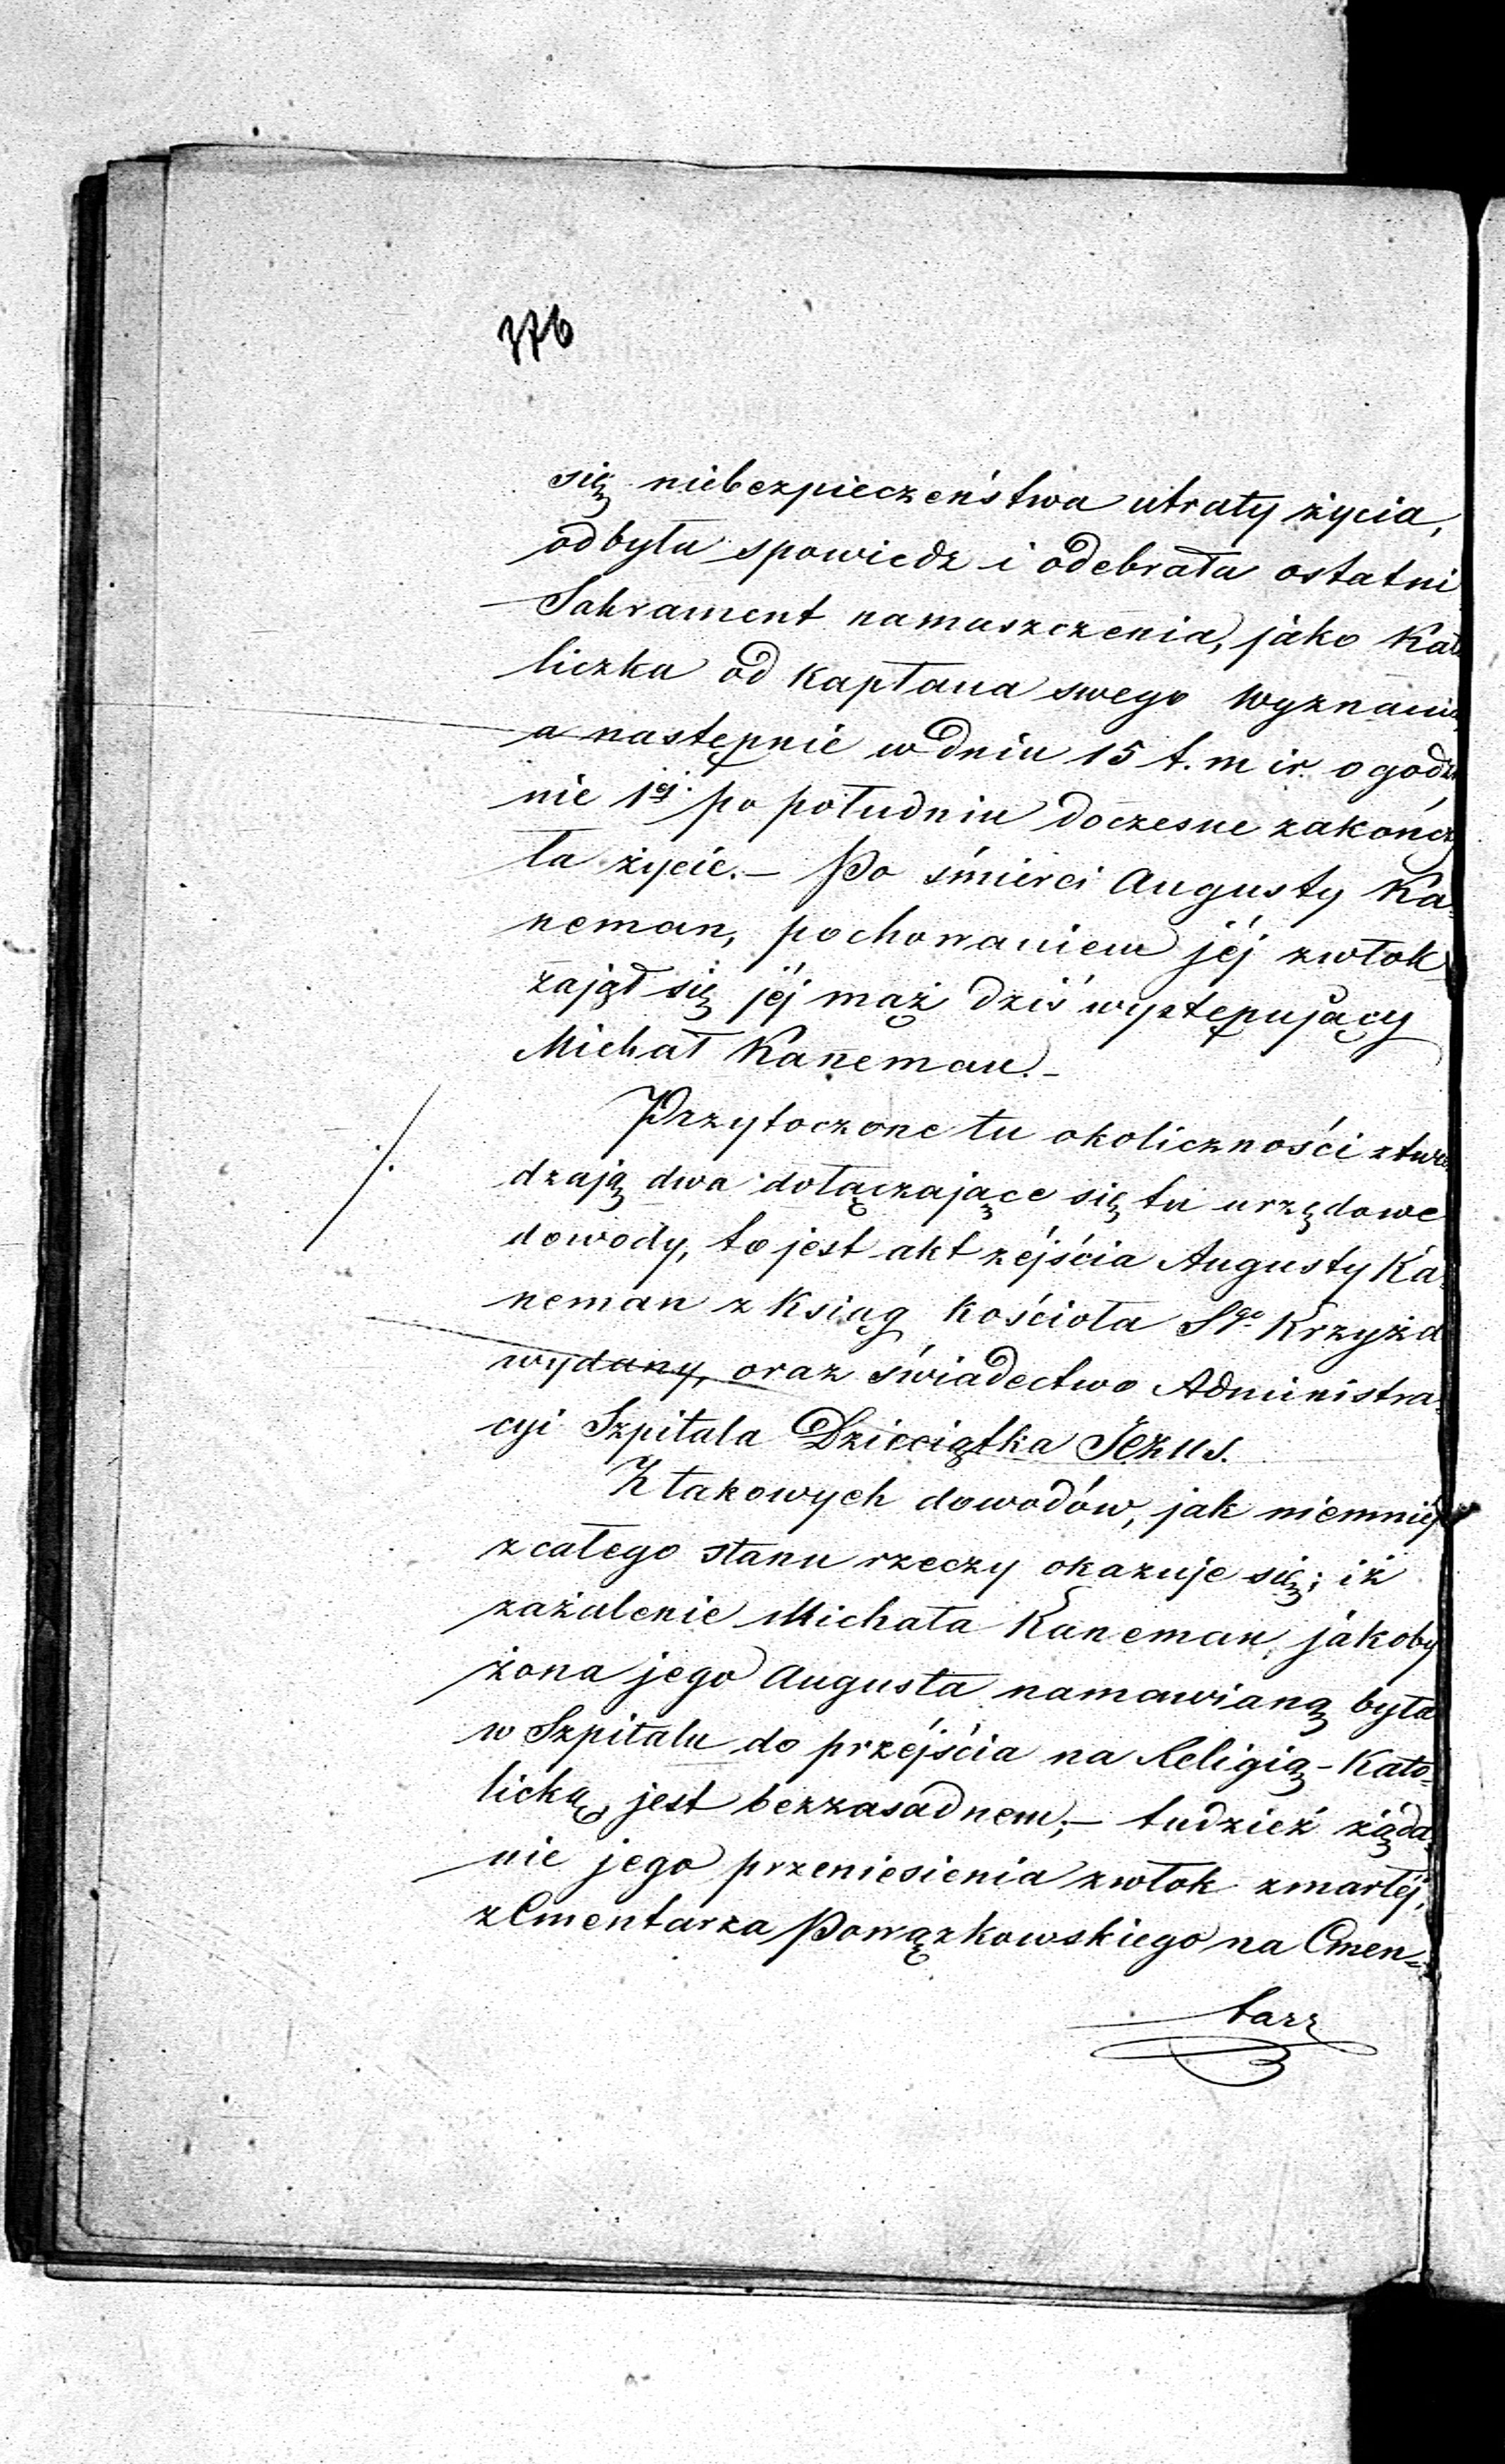 376
się niebezpieczeństwa utraty życia,
odbyła spowiedz i odebrała ostatni
Sakrament namaszczenia, jako Kato
liczka od Kapłana swego Wyznania
a następnie w dniu 15 t. m i r. o godzi
nie 1ej po południu doczesne zakończy
ła życie.– Po śmierci Augusty Ka-
neman, pochowaniem jéj zwłok
zajął się jéj mąż dziś występujący
Michał Kaneman.–
Przytoczone tu okoliczności stwier
dzają dwa dołączające się tu urzędowe
dowody, to jest akt zejścia Augusty Ka-
neman z Ksiąg Kościoła Sgo Krzyża
wydany, oraz świadectwo Administra-
cyi Szpitala Dzieciątka Jezus.
Z takowych dowodów, jak niemniéj
z całego stanu rzeczy okazuje się; iż
zażalenie Michała Kaneman, jakoby
żona jego Augusta namawianą była
w Szpitalu do przejścia na Religią-Kato-
licką, jest bezzasadnem;– tudzież żąda-
nie jego przeniesienia zwłok zmarłéj,
z Cmentarza Powązkowskiego na Cmen-
tarz